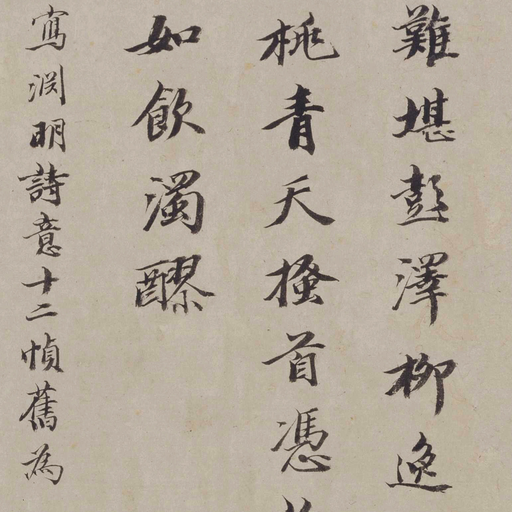 難堪彭澤柳逸
桃青天搔首憑
如飲濁醪
寫渊明詩意十二幀舊為